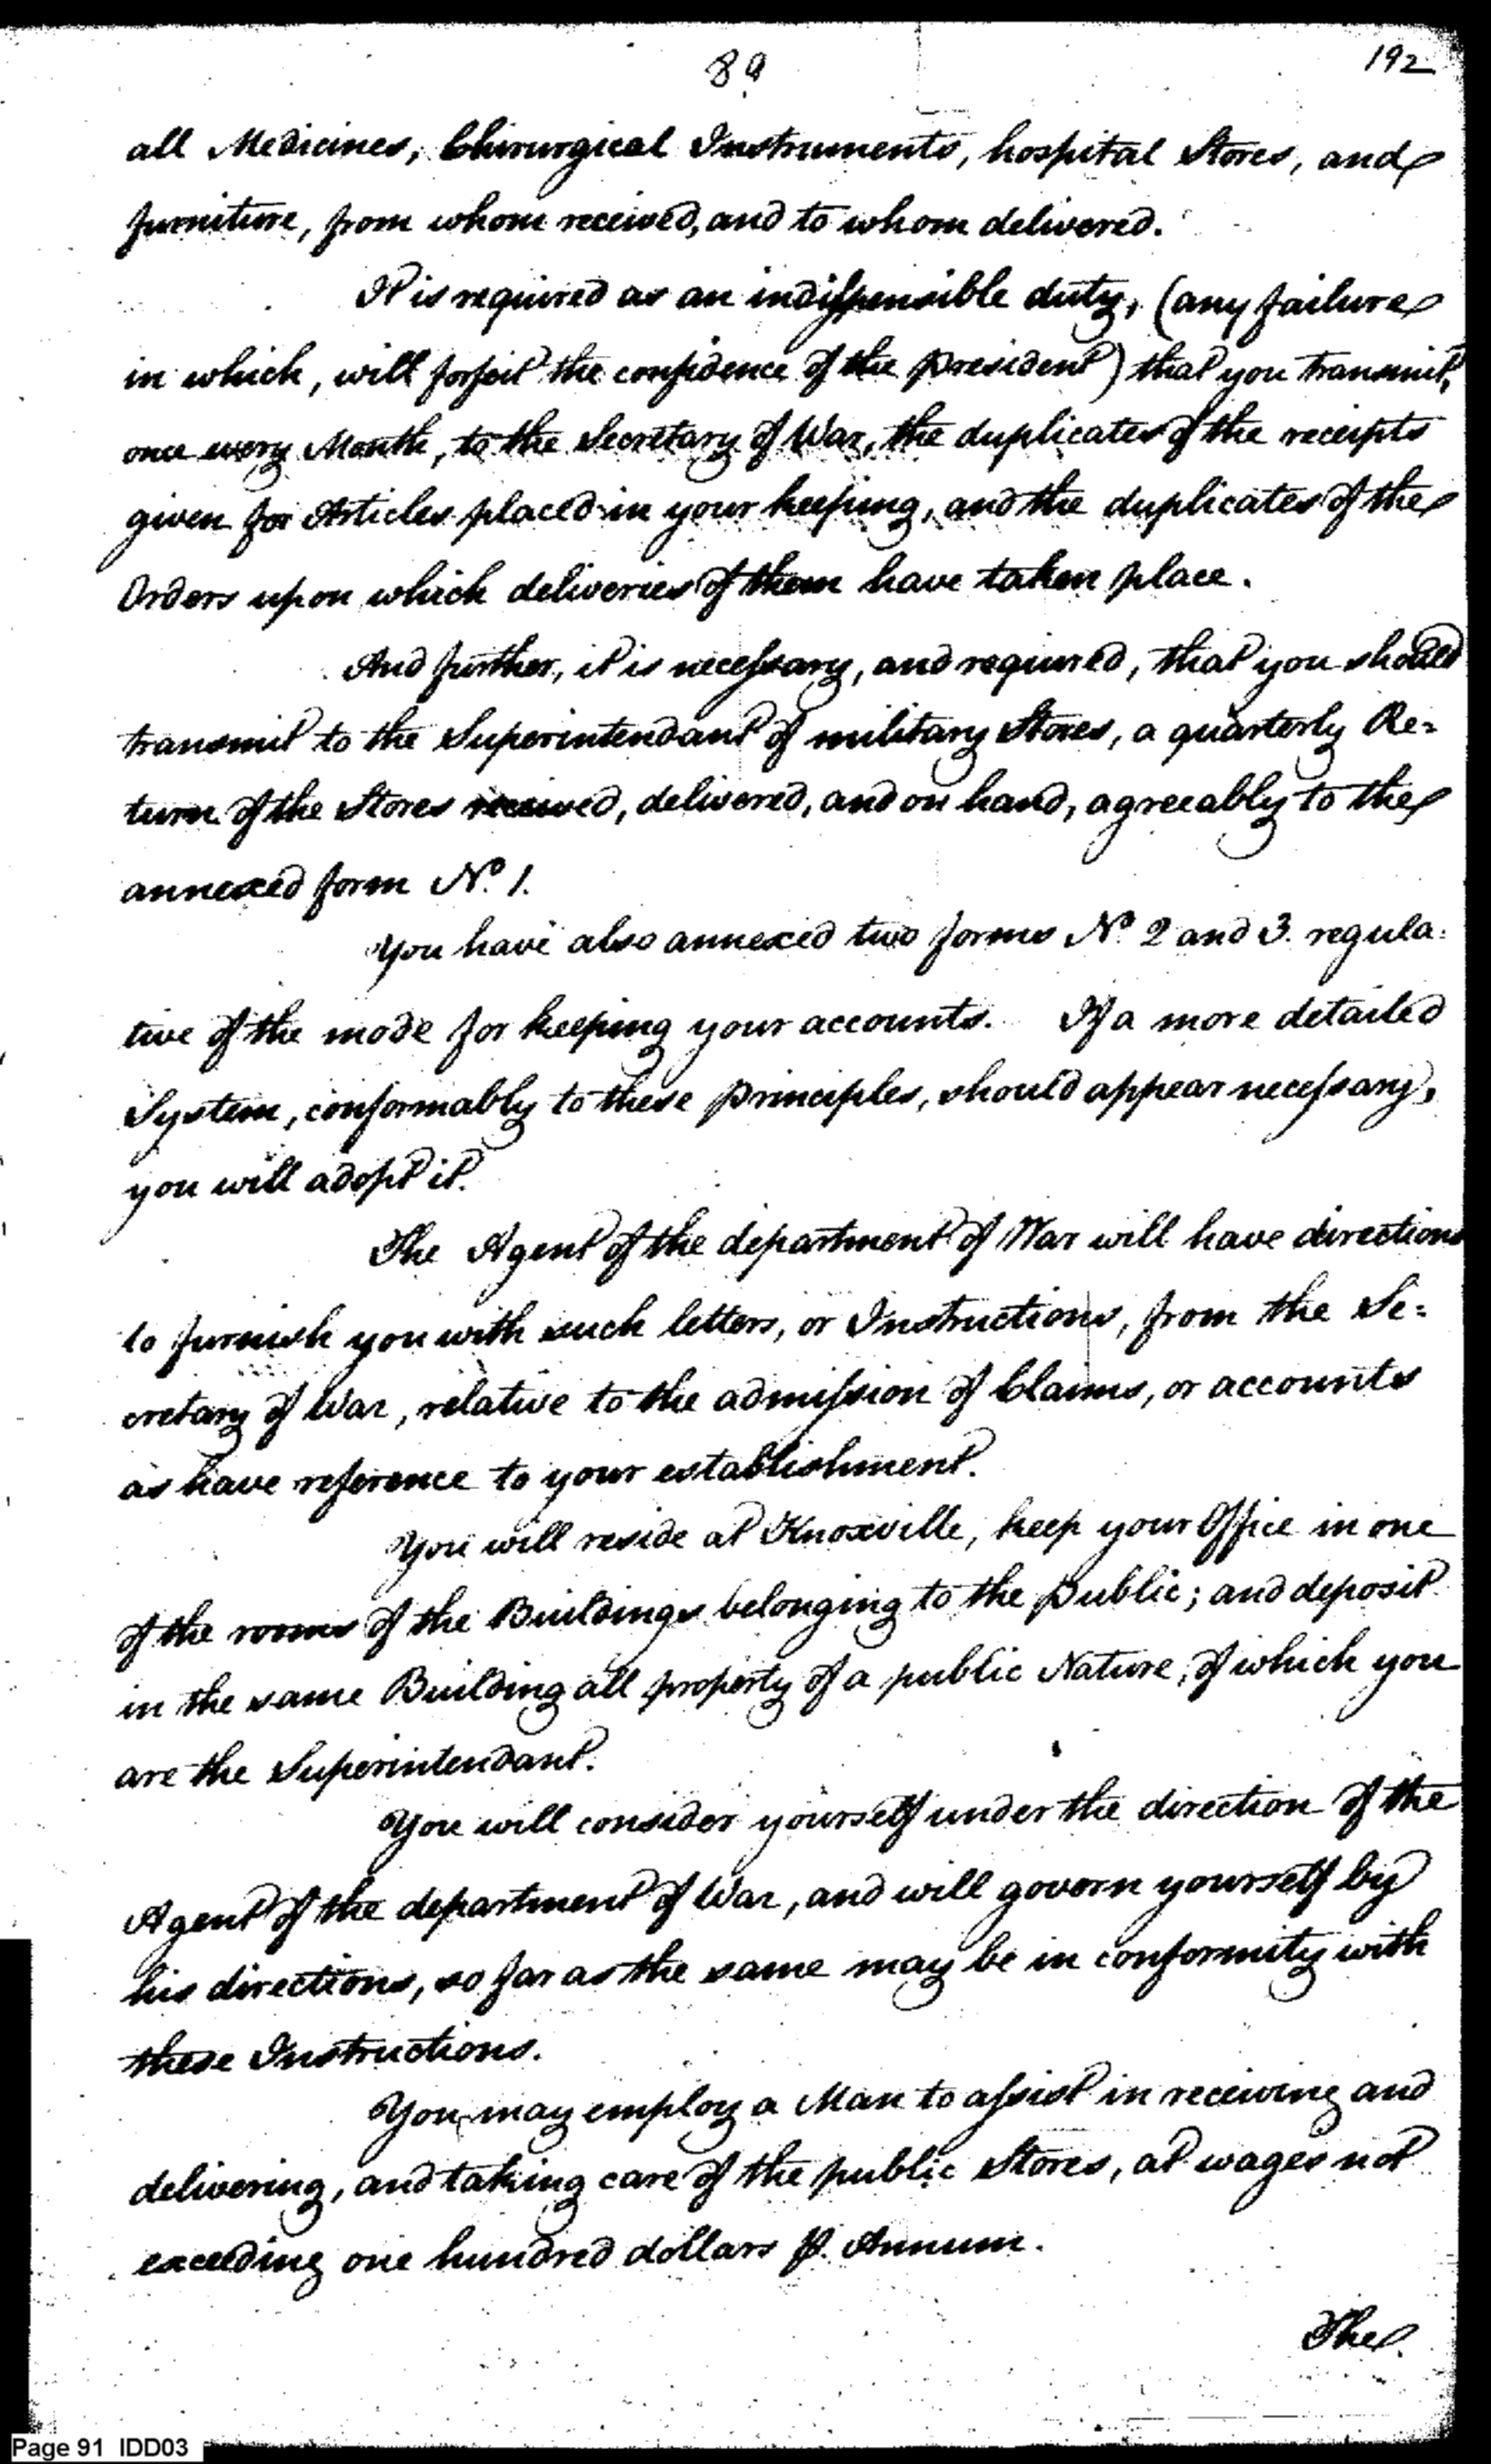 89
192
all Medicines, Chirurgical Instruments, hospital Stores, and
furniture, from whom received, and to whom delivered.
It is required as an indispensible duty, (any failure
in which, will forfeit the confidence of the president) that you transmit,
once every Month, to the Secretary of War, the duplicates of the receipts
given for Articles placed in your keeping, and the duplicates of the
Orders upon which deliveries of them have taken place.
And further, it is necessary, and required, that you should
transmit to the Superintendant of military Stores, a quarterly Re=
turn of the Stores received, delivered, and on hand, agreeably to the
annexed form No. 1.
You have also annexed two forms No. 2 and 3. regula=
tive of the mode for keeping your accounts. If a more detailed
System, conformably to these principles, should appear necessary,
you will adopt it.
The Agent of the department of War will have directions
to furnish you with such letters, or Instructions, from the Se=
cretary of War, relative to the admission of Claims, or accounts
as have reference to your establishment.
You will reside at Knoxville, keep your Office in one
of the rooms of the Buildings belonging to the public; and deposit
in the same Building all property of a public Nature, of which you
are the Superintendant.
You will consider yourself under the direction of the
Agent of the department of War, and will govern yourself by
his directions, so far as the same may be in conformity with
these Instructions.
You may employ a Man to assist in receiving and
delivering, and taking care of the public Stores, at wages not
exceeding one hundred dollars p. Annum.
The
Page 91 IDD03